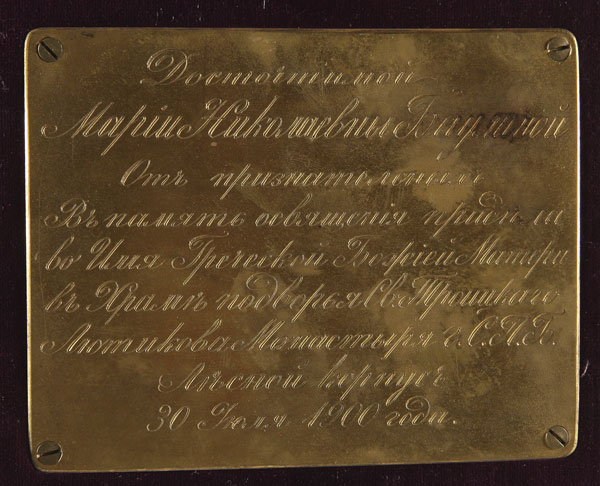 Досточтимой
Маріи Николаевны
Отъ признательныхъ
Въ память освященія придѣла
во Имя Греческой Божіей Матери
въ Храмѣ подворья Св. Троицкаго
Лютикова Монастыря г. С.П.Б.
Лѣсной Корпусъ
30 Іюля 1900 года.